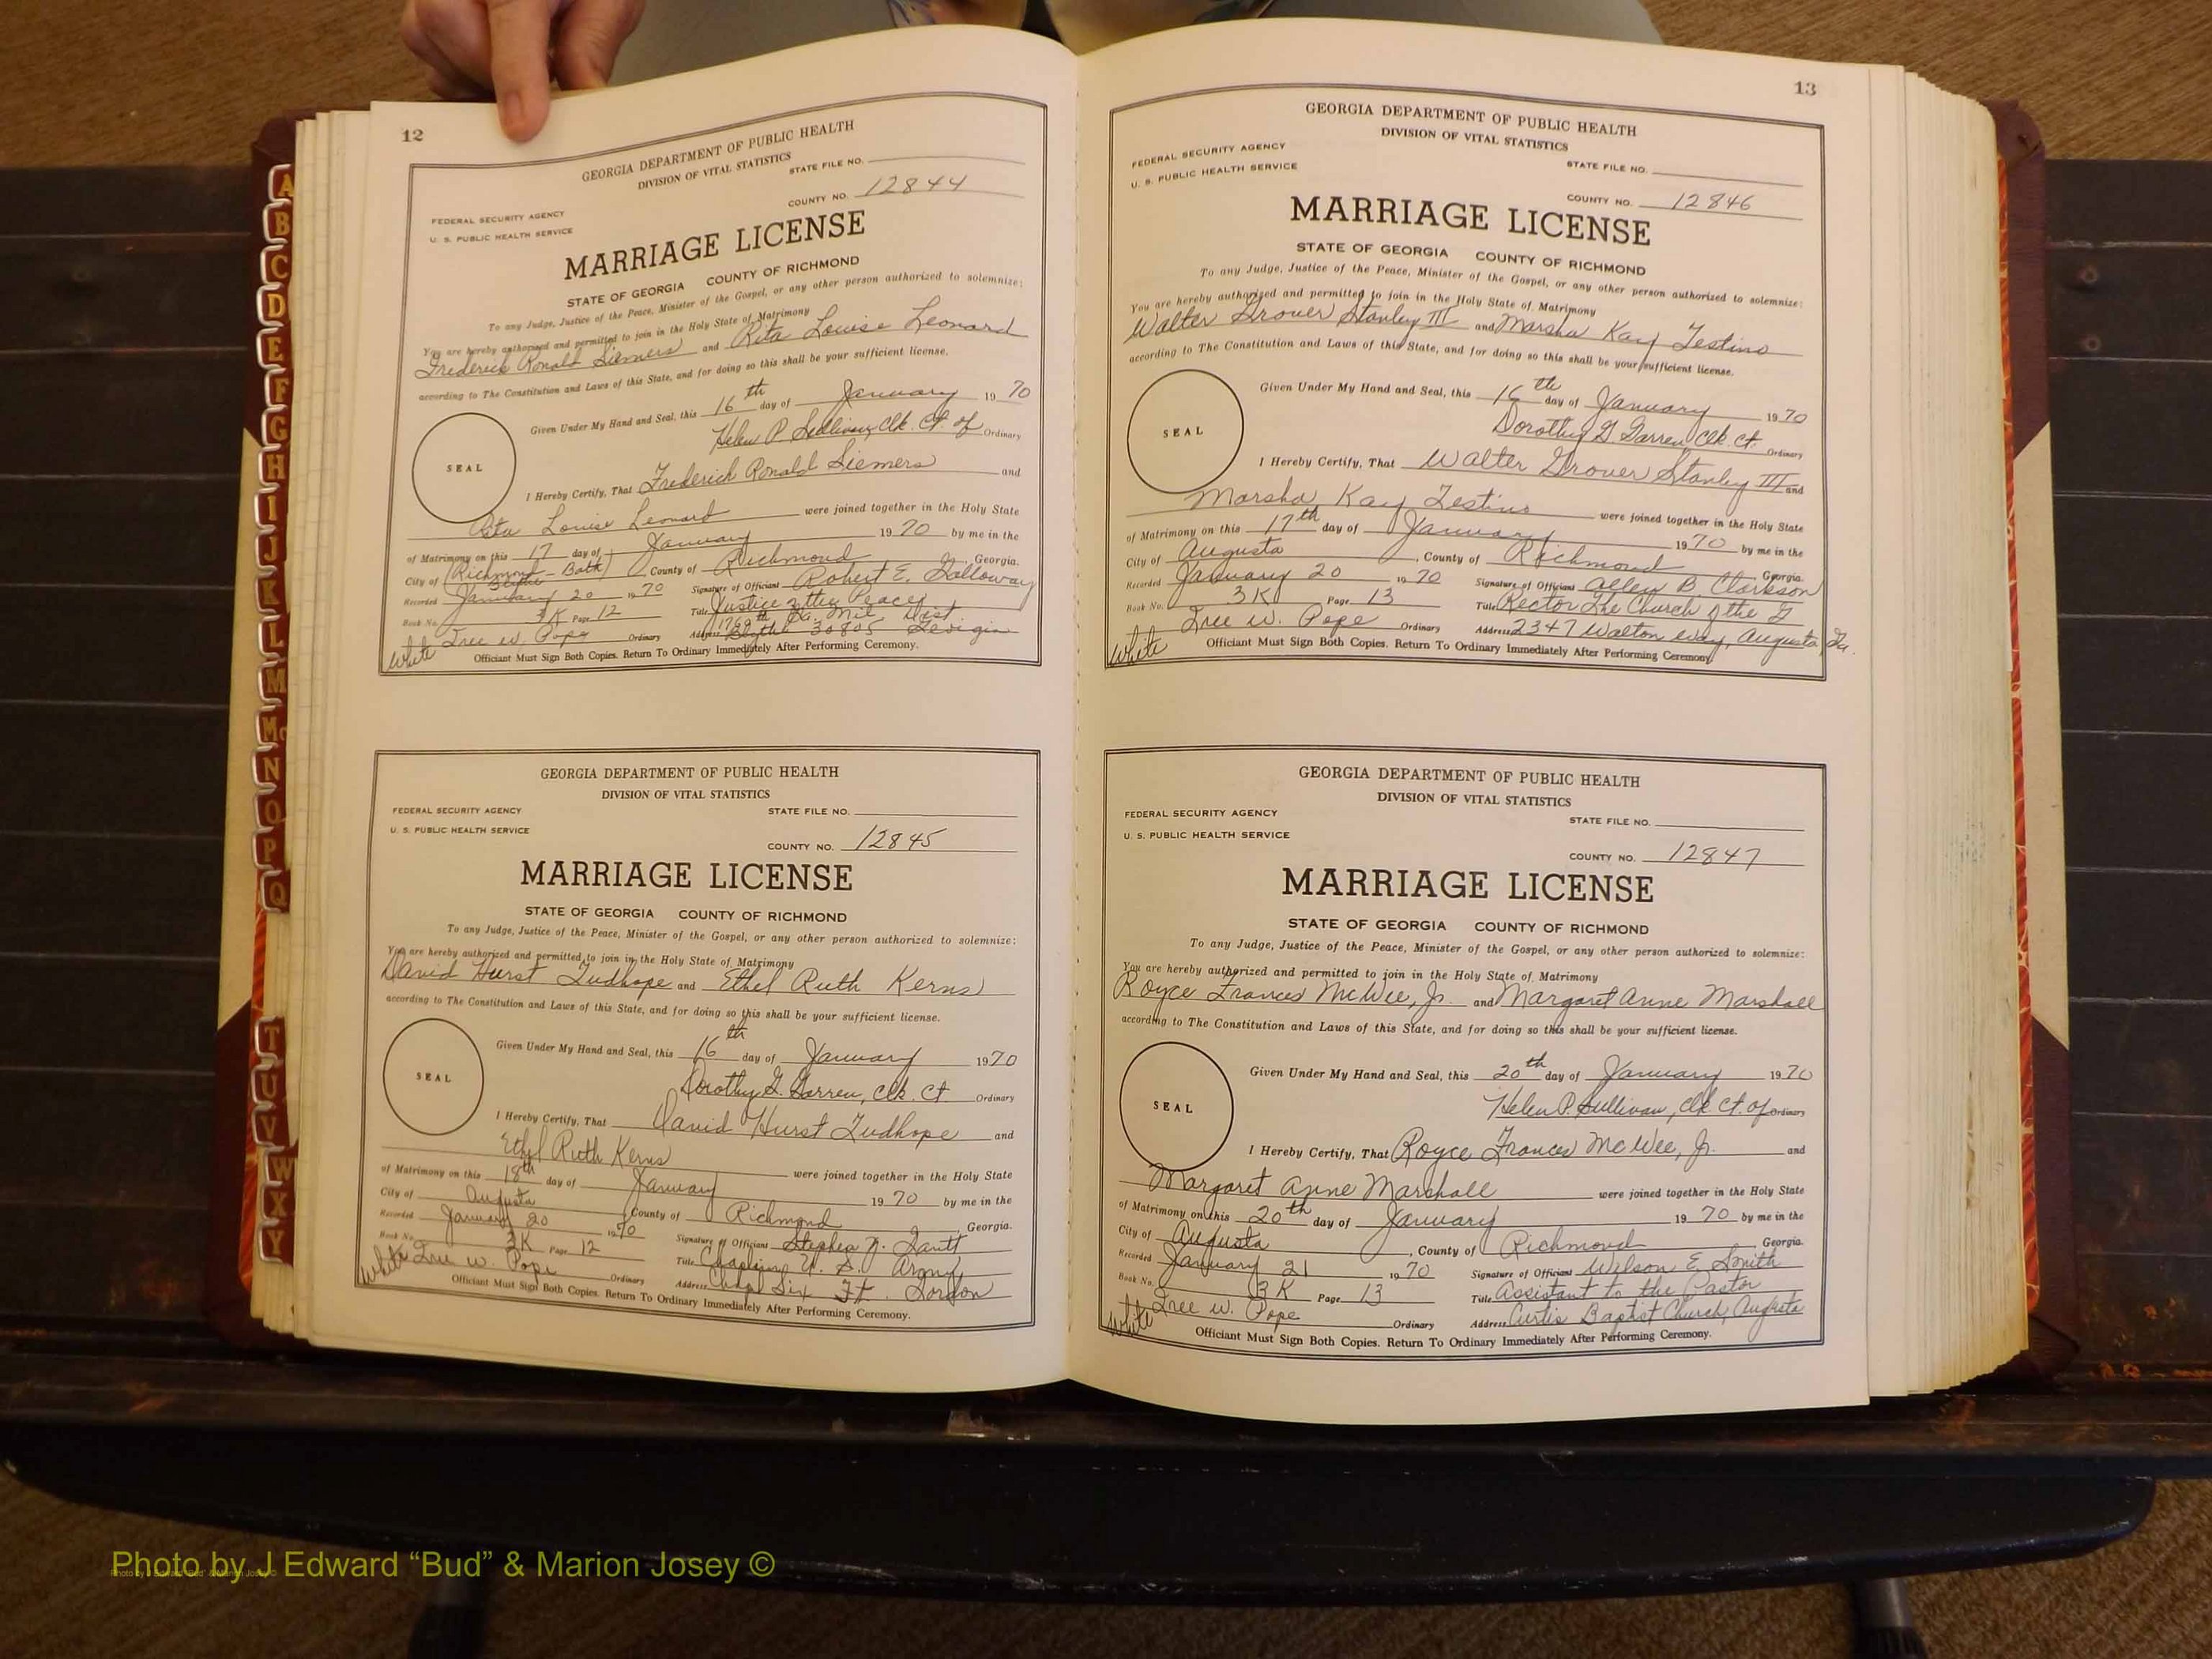 12
GEORGIA DEPARTMENT OF PUBLIC HEALTH
DIVISION OF VITAL STATISTICS
STATE FILE NO.
COUNTY NO. 12844
FEDERAL SECURITY AGENCY
U. S. PUBLIC HEALTH SERVICE
MARRIAGE LICENSE
STATE OF GEORGIA COUNTY OF RICHMOND
To any Judge, Justice of the Peace, Minister of the Gospel, or any other person authorized to solemnize:
You are hereby authorized and permitted to join in the Holy State of Matrimony
Frederick Ronald Siemers and Rita Louise Leonard
according to The Constitution and Laws of this State, and for doing so this shall be your sufficient license.
Given Under My Hand and Seal, this 16th day of January 1970
Helen P. Sullivan, Clk. Ct. of Ordinary
SEAL
I Hereby Certify, That Frederick Ronald Siemers and
Rita Louise Leonard were joined together in the Holy State
of Matrimony on this 17 day of January 1970 by me in the
City of (Richmond - Bath) County of Richmond, Georgia.
Blythe
Recorded January 20 1970 Signature of Officiant Robert E. Galloway
Book No. 3K Page 12 Title Justice of the Peace
1760th Ga. Mil. Dist
White Tree W. Pope Ordinary Address Blythe 30805
Officiant Must Sign Both Copies. Return To Ordinary Immediately After Performing Ceremony.
GEORGIA DEPARTMENT OF PUBLIC HEALTH
DIVISION OF VITAL STATISTICS
FEDERAL SECURITY AGENCY STATE FILE NO.
U. S. PUBLIC HEALTH SERVICE
COUNTY NO. 12845
MARRIAGE LICENSE
STATE OF GEORGIA COUNTY OF RICHMOND
To any Judge, Justice of the Peace, Minister of the Gospel, or any other person authorized to solemnize:
You are hereby authorized and permitted to join in the Holy State of Matrimony
David Hurst Tudhope and Ethel Ruth Kerns
according to The Constitution and Laws of this State, and for doing so this shall be your sufficient license.
Given Under My Hand and Seal, this 16th day of January 1970
Dorothy G. Garren, Clk. Ct. Ordinary
SEAL
I Hereby Certify, That David Hurst Tudhope and
Ethel Ruth Kerns were joined together in the Holy State
of Matrimony on this 18th day of January 1970 by me in the
City of Augusta County of Richmond, Georgia.
Recorded January 20 1970 Signature of Officiant Stephen
Book No. 3K Page 12 Title Chaplain U. S. Army
White Tree W. Pope Ordinary Address Chapl Six Ft. Gordon
Officiant Must Sign Both Copies. Return To Ordinary Immediately After Performing Ceremony.
13
GEORGIA DEPARTMENT OF PUBLIC HEALTH
DIVISION OF VITAL STATISTICS
FEDERAL SECURITY AGENCY
U. S. PUBLIC HEALTH SERVICE
STATE FILE NO.
COUNTY NO. 12846
MARRIAGE LICENSE
STATE OF GEORGIA COUNTY OF RICHMOND
To any Judge, Justice of the Peace, Minister of the Gospel, or any other person authorized to solemnize:
You are hereby authorized and permitted to join in the Holy State of Matrimony
Walter Grover Stanley III and Marsha Kay Testino
according to The Constitution and Laws of this State, and for doing so this shall be your sufficient license.
Given Under My Hand and Seal, this 16th day of January 1970
Dorothy G. Garren, Clk. Ct. Ordinary
SEAL
I Hereby Certify, That Walter Grover Stanley III and
Marsha Kay Testino were joined together in the Holy State
of Matrimony on this 17th day of January 1970 by me in the
City of Augusta, County of Richmond Georgia.
Recorded January 20 1970 Signature of Officiant Allen B. Clarkson
Book No. 3K Page 13 Title Rector The Church of the G
White Tree W. Pope Ordinary Address 2347 Walton Way, Augusta, Ga.
Officiant Must Sign Both Copies. Return To Ordinary Immediately After Performing Ceremony.
GEORGIA DEPARTMENT OF PUBLIC HEALTH
DIVISION OF VITAL STATISTICS
FEDERAL SECURITY AGENCY
STATE FILE NO.
U. S. PUBLIC HEALTH SERVICE
COUNTY NO. 12847
MARRIAGE LICENSE
STATE OF GEORGIA COUNTY OF RICHMOND
To any Judge, Justice of the Peace, Minister of the Gospel, or any other person authorized to solemnize:
You are hereby authorized and permitted to join in the Holy State of Matrimony
Royce Frances McWee, Jr. and Margaret Anne Marshall
according to The Constitution and Laws of this State, and for doing so this shall be your sufficient license.
Given Under My Hand and Seal, this 20th day of January 1970
Helen P. Sullivan, Clk Ct. of Ordinary
SEAL
I Hereby Certify, That Royce Frances McWee, Jr. and
Margaret Anne Marshall were joined together in the Holy State
of Matrimony on this 20th day of January 1970 by me in the
City of Augusta, County of Richmond Georgia.
Recorded January 21 1970 Signature of Officiant Wilson E. Smith
Book No. 3K Page 13 Title Assistant to the Pastor
White Tree W. Pope Ordinary Address Curtis Baptist Church, Augusta
Officiant Must Sign Both Copies. Return To Ordinary Immediately After Performing Ceremony.
A
B
C
D
E
F
G
H
I
J
K
L
M
Mc
N
O
P
Q
T
U
V
W
X
Y
Photo by J Edward “Bud” & Marion Josey ©